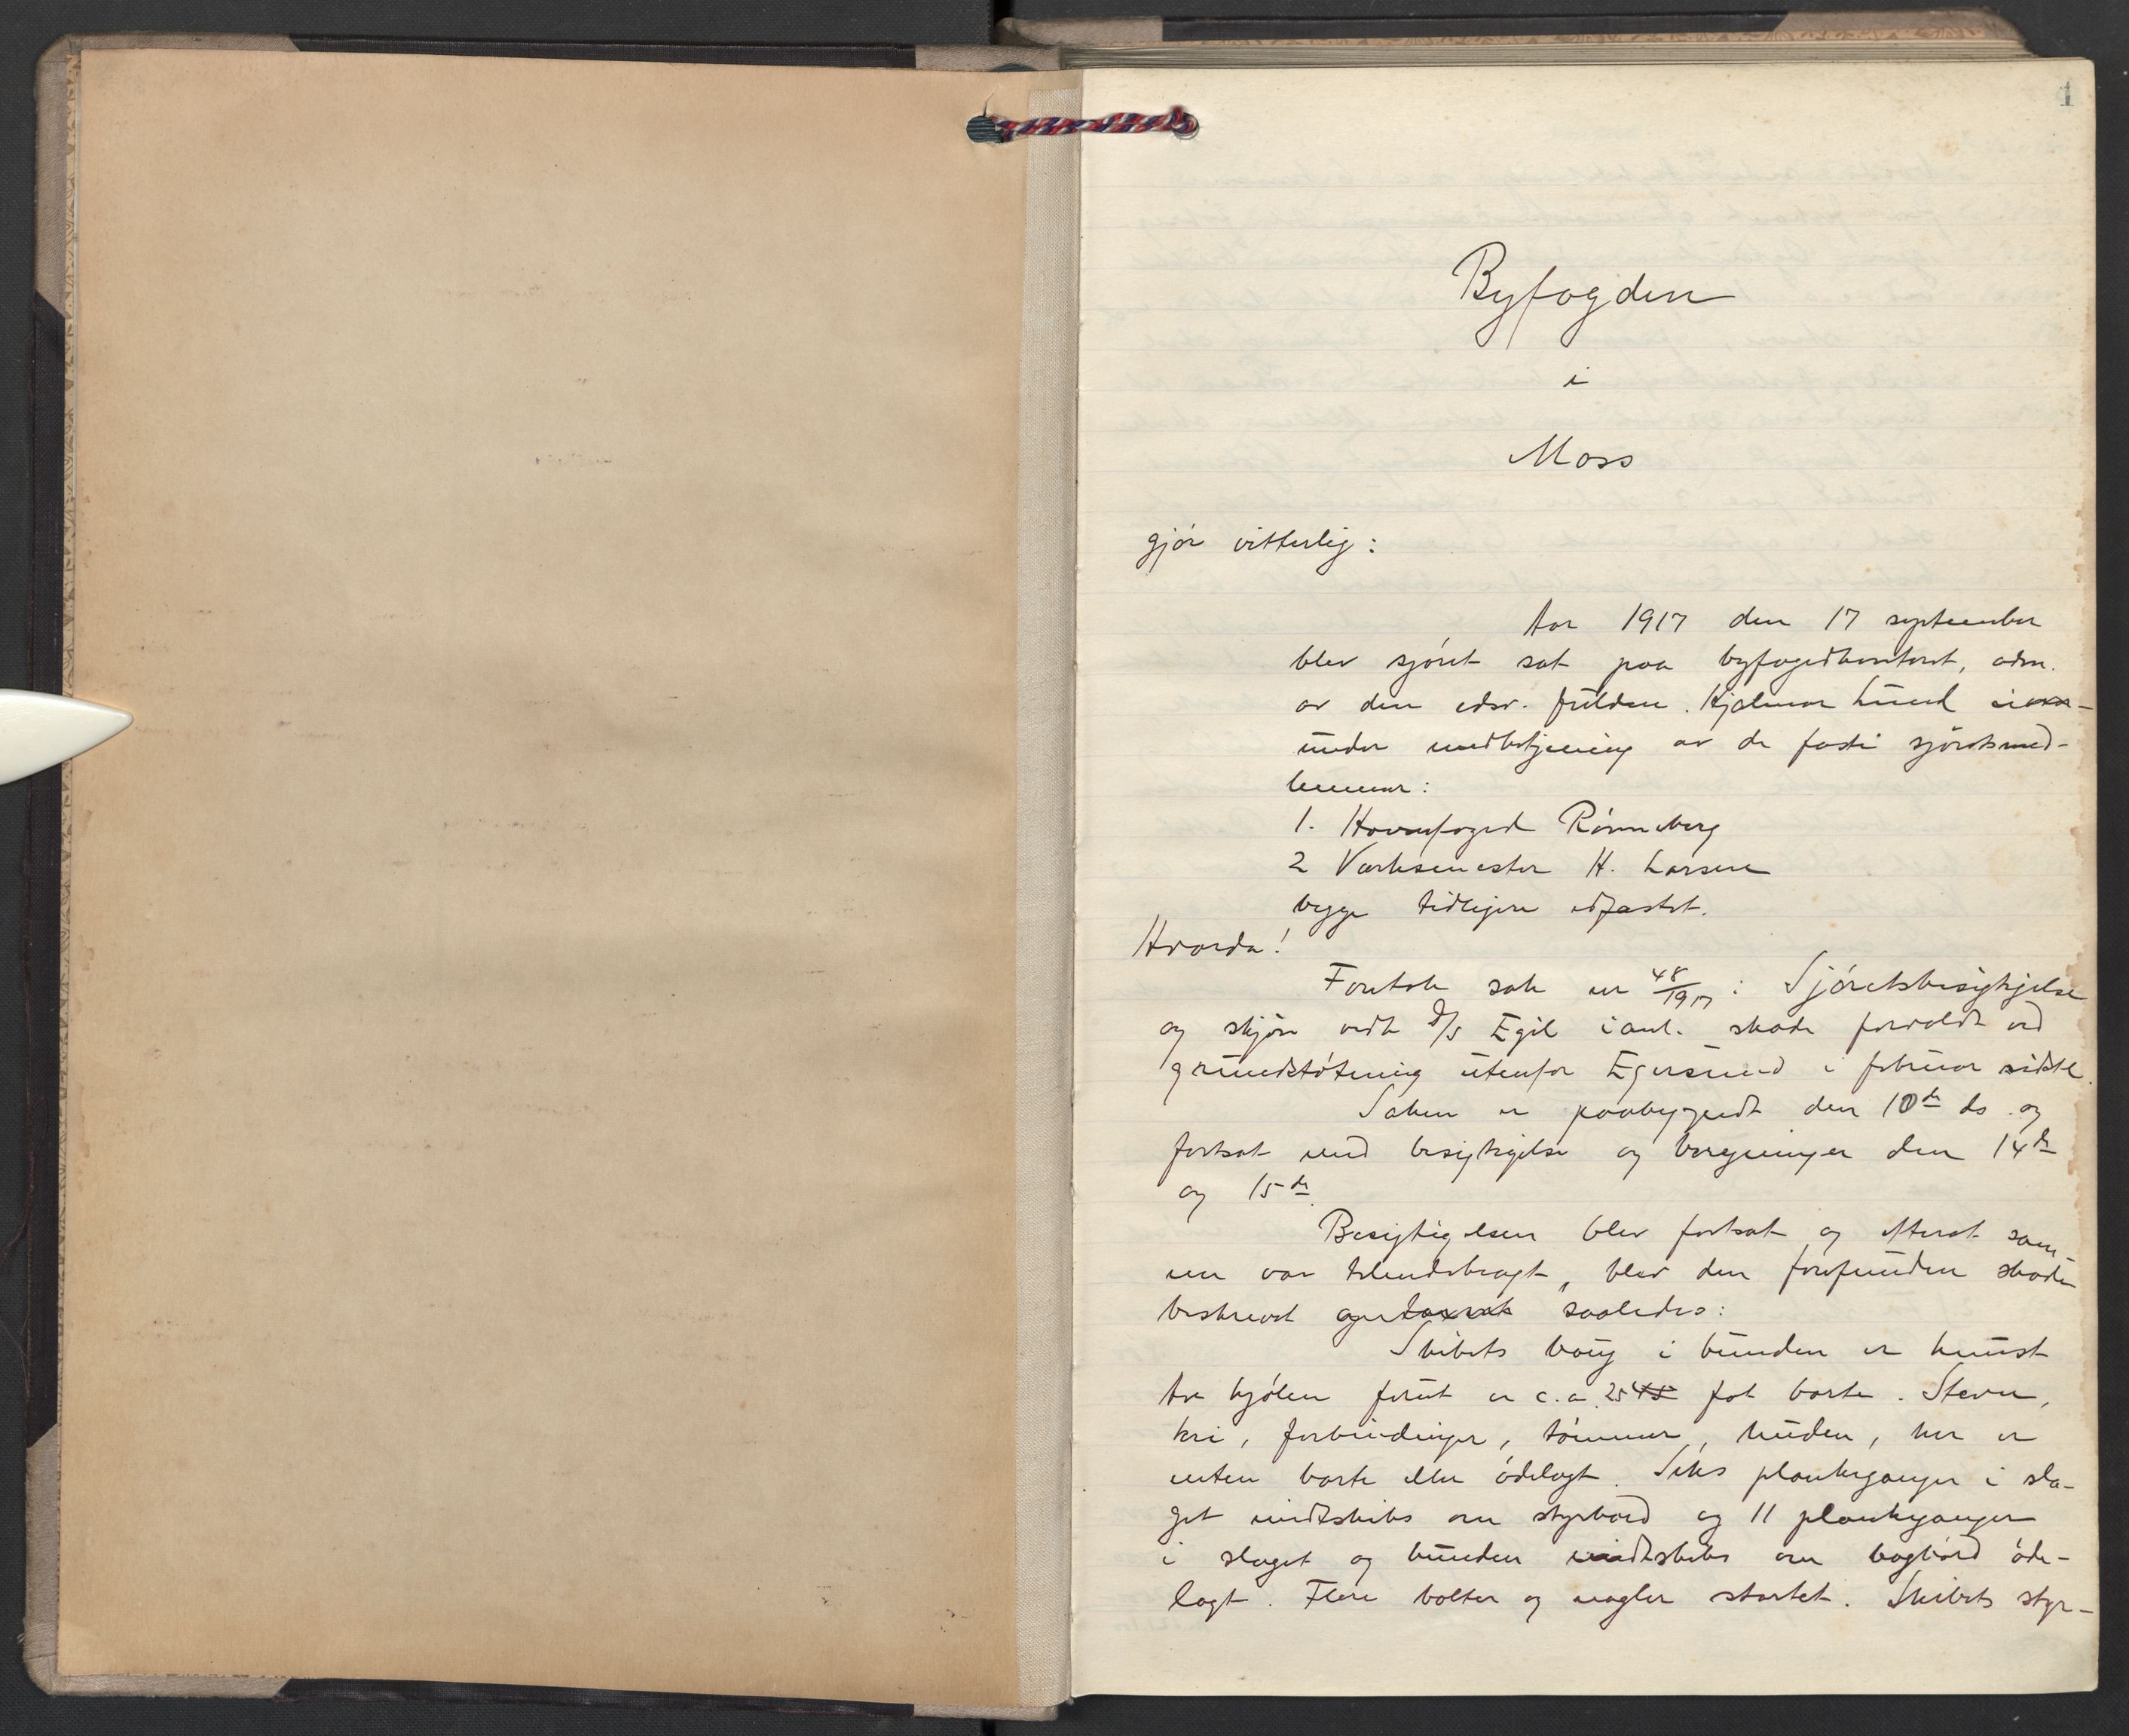 1
Byfogden
i
Moss
gjør vitterlig:
Aar 1917 den 17 september
blev sjøret sat paa byfogedkontoret, adm.
av den edsv. fuldm. Hjalmar Lund
under medbetjening av de faste sjøretsmed-
lemmer:
1. Havnefoged Rønneberg
2 Verksmester H. Larsen
begge tidligere edfæstet.
Hvorda!
Foretok sak nr 48/1917: Sjøretsbesigtigelse
og skjøn vedk D/S Egil i anl. skade forvoldt ved
grundstøtning utenfor Egersund i februar sidstl.
Saken er paabegyndt den 10de ds. og
fortsat med besigtigelse og beregninger den 14de
og 15de.
Besigtigelsen blev fortsat og efterat sam-
me var tilendebragt, blev den forefunden skade
beskrevet og taxert saaledes:
Skibets baug i bunden er knust
Av kjølen forut er c. a. 25 45 fot borte. Stevn,
kni, forbindinger, tømmer, huden, her er
enten borte eller ødelagt. Seks plankeganger i sla-
get midtskibs om styrbord og 11 plankeganger
i slaget og bunden midtskibs om bagbord øde-
lagt. Flere bolter og nagler startet. Skibets styr-